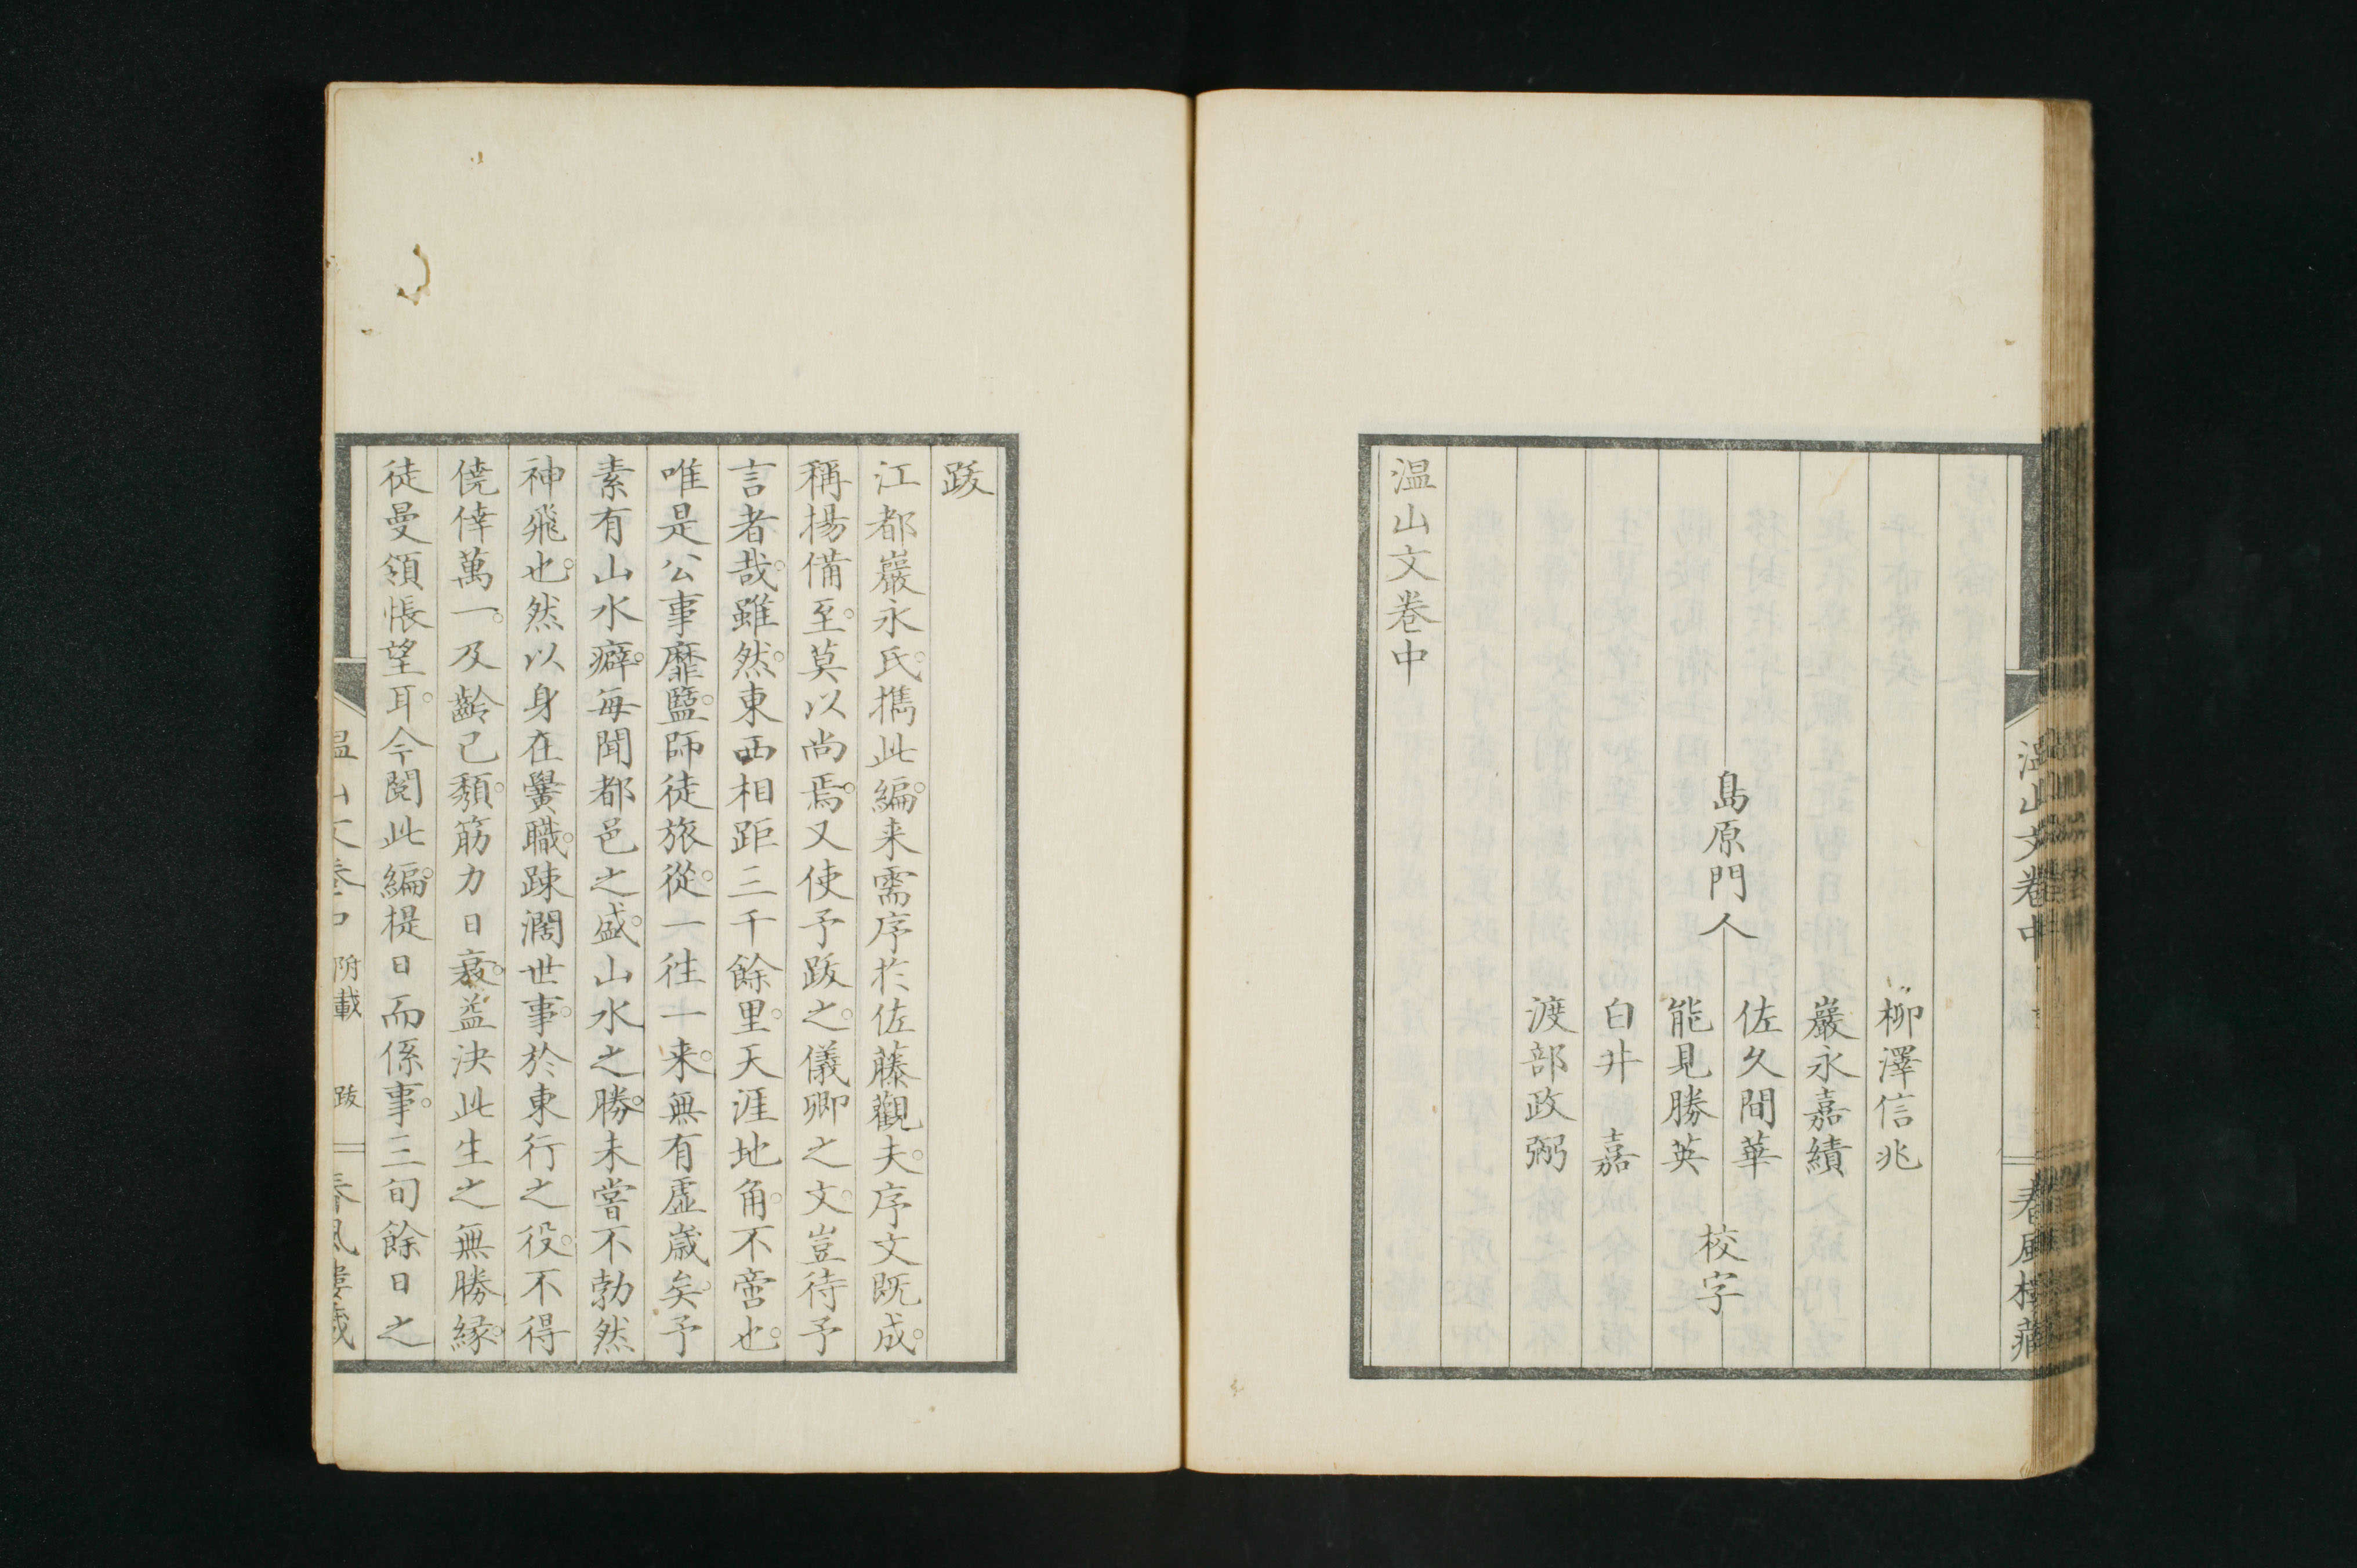 温山文巻中
春風樓藏
柳澤信兆
巖永嘉績
佐久間華
島原門人
校字
能見勝英
白井嘉
渡部政弼
温山文卷中
跋
江都巖永氏。攜此編。来需序於佐藤觀夫。序文既成。
稱揚備至。莫以尚焉。又使予跋之。儀卿之文。豈待予
言者哉。雖然。東西相距三千餘里。天涯地角。不啻也。
唯是公事靡盬。師徒旅從。一往一来。無有虛歲矣。予
素有山水癖。每聞都邑之盛。山水之勝。未嘗不勃然
神飛也。然以身在黌職。踈濶世事。於東行之役。不得
僥倖萬一。及齡已頽。筋力日衰。益決此生之無勝緣。
徒曼領悵望耳。今閱此編。提日而係事。三旬餘日之
温山文卷中 附載 跋 春風樓藏